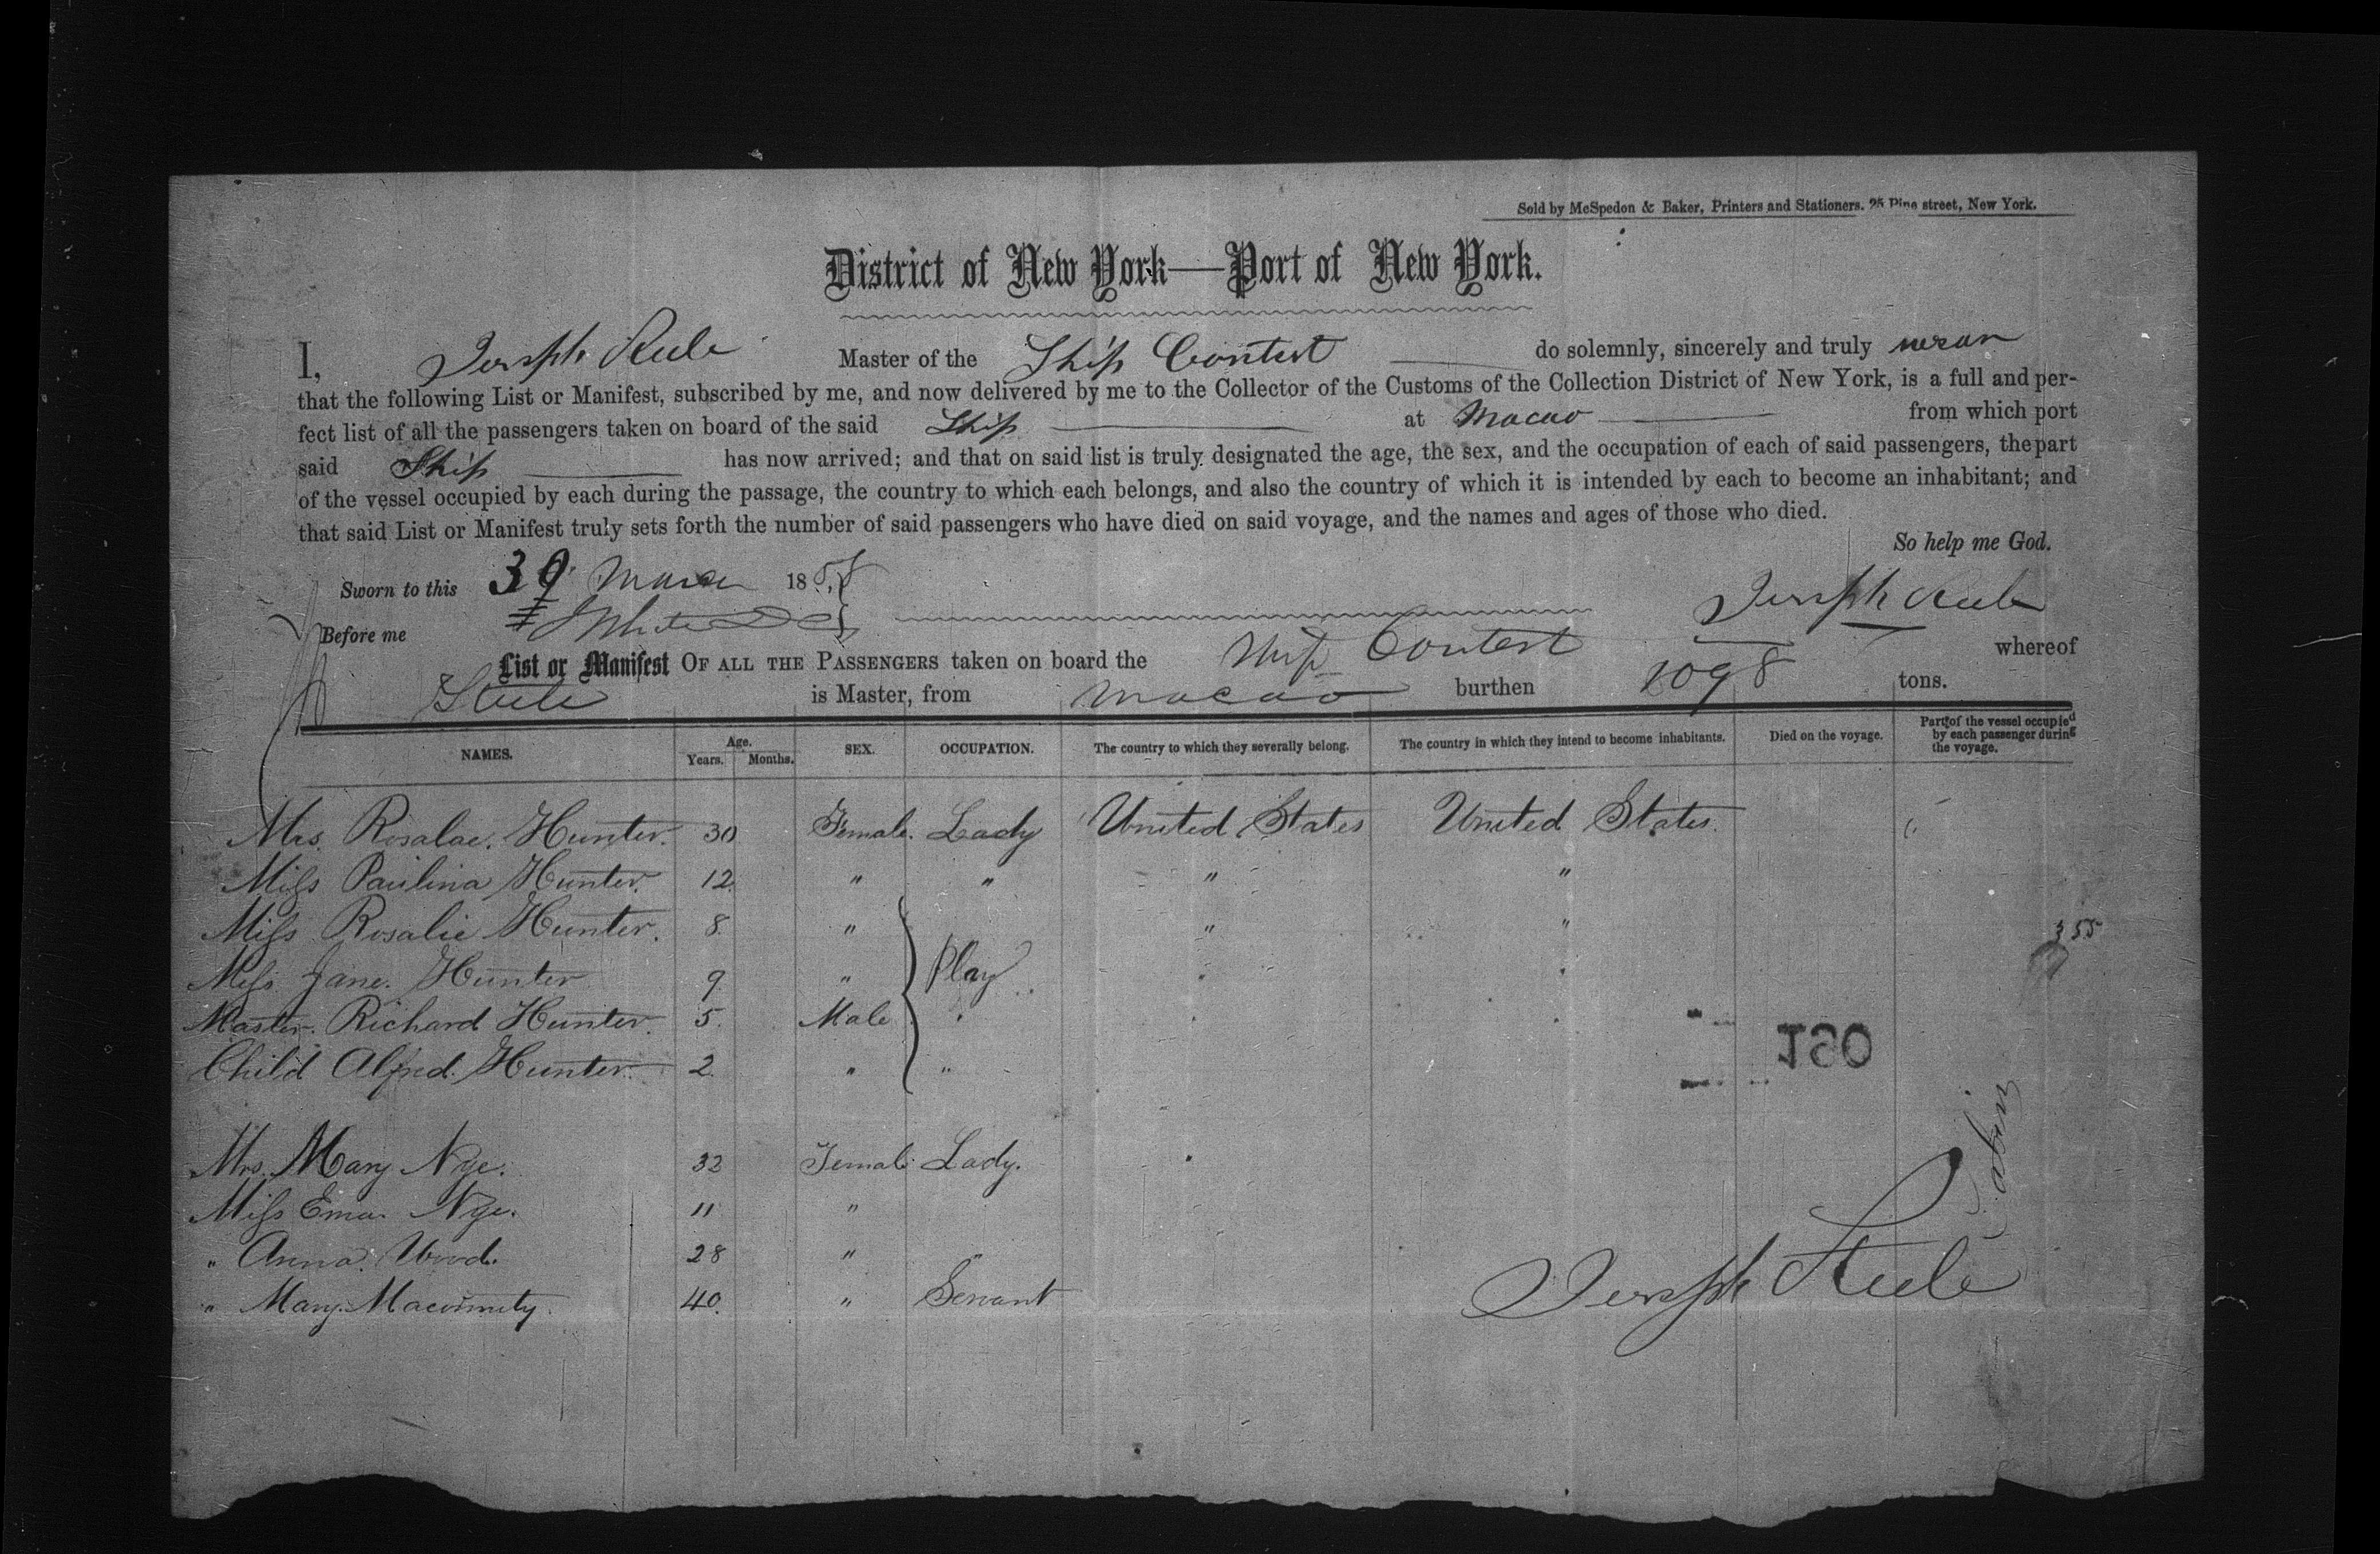 Sold by McSpedon & Baker, Printers and Stationers. 25 Pine street, New York.
District of New York—Port of New York.
I, Joseph Steele Master of the Ship Contest do solemnly, sincerely and truly swear
that the following List or Manifest, subscribed by me, and now delivered by me to the Collector of the Customs of the Collection District of New York, is a full and per-
fect list of all the passengers taken on board of the said Ship at Macao from which port
said Ship has now arrived; and that on said list is truly designated the age, the sex, and the occupation of each of said passengers, the part
of the vessel occupied by each during the passage, the country to which each belongs, and also the country of which it is intended by each to become an inhabitant; and
that said List or Manifest truly sets forth the number of said passengers who have died on said voyage, and the names and ages of those who died.
So help me God.
Sworn to this 30 March 1858
Before me White Joseph Steele
List or Manifest OF ALL THE PASSENGERS taken on board the Ship Contest whereof
Steele is Master, from Macao burthen 1098 tons.
NAMES. Age. Years. Months. SEX. OCCUPATION. The country to which they severally belong. The country in which they intend to become inhabitants. Died on the voyage. Part of the vessel occupied by each passenger during the voyage.
Mrs. Rosalae. Hunter. 30 Female. Lady United States United States.
Miss Paulina Hunter. 12. " " " "
Miss Rosalie Hunter. 8. " " "
Miss Jane. Hunter 9. " Play " "
Master. Richard Hunter. 5. Male " " "
Child Alfred. Hunter. 2. " "
Mrs. Mary Nye. 32 Female Lady. "
Miss Ema. Nye. 11 "
" Anna. Wood. 28 " "
" Mary. Macormity. 40. " Servant
355
150
Cabin
Joseph Steele